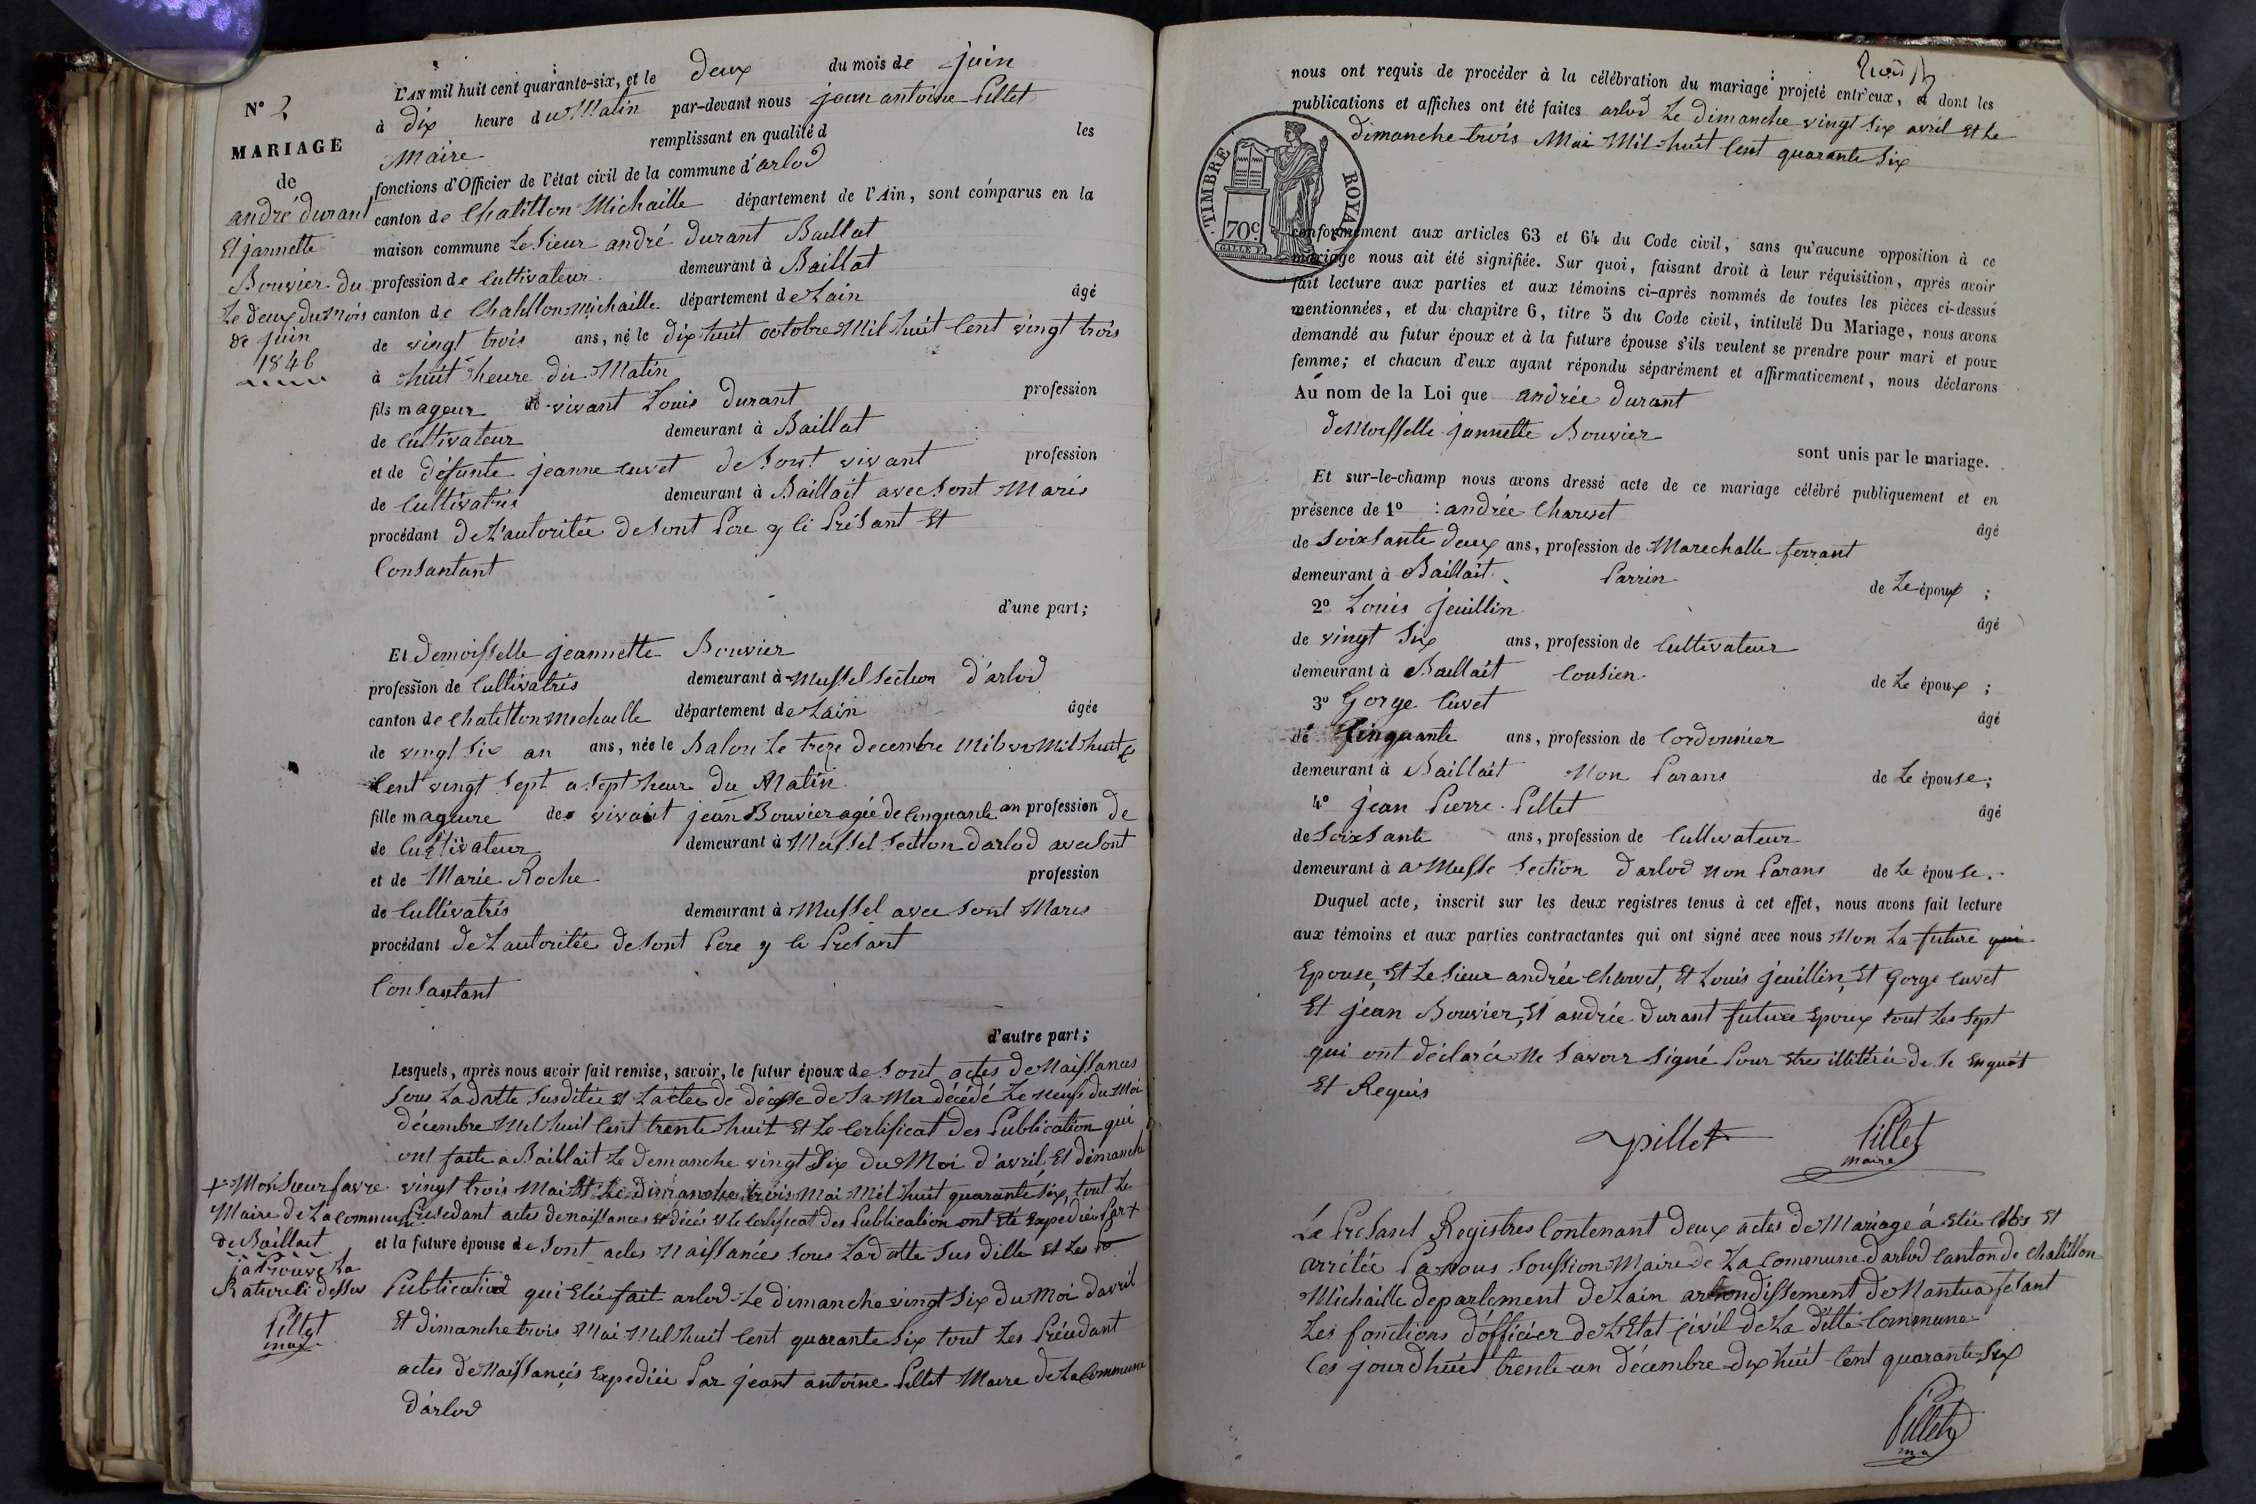 N° 2
MARIAGE
de
andré durant
Et jannette
Bouvier du
Le deux du mois
de juin
1846
L'AN mil huit cent quarante-six, et le deux du mois de juin
à dix heure du Matin par-devant nous jean antoine Pillet
Maire remplissant en qualité d les
fonctions d'Officier de l'état civil de la commune d'arlod
canton de Chatillon Michaille département de l'Ain, sont comparus en la
maison commune Le Sieur andré durant Baillat
profession de Cultivateur demeurant à Baillat
canton de Chatillon michaille département de Lain âgé
de vingt trois ans, né le dix huit octobre Mil huit Cent vingt trois
à huit heure du Matin
fils mageur de vivant Louis durant profession
de Cultivateur demeurant à Baillat
et de défunte jeanne Cuvet de Sont vivant profession
de Cultivatris demeurant à Baillait avec Sont Maris
procédant de L'autoritée de Sont Pere y Ci Présant Et
Consantant
d'une part;
Et demoisselle jeannette Bouvier
profession de Cultivatris demeurant à Mussel Section d'arlod
canton de Chatillon Michaille département de Lain âgée
de vingt Six an ans, née le Balon Le treze decembre Mil huit
Cent vingt Sept a Sept heur du Matin
fille mageure de vivant jean Bouvier agée de Cinquante an profession de
de Cultivateur demeurant à Mussel Section darlod avec Sont
et de Marie Roche profession
de Cultivatris demeurant à Mussel avec Sont Maris
procédant de Lautoritée de Sont Pere y Ci Présant
Consantant
d'autre part;
Lesquels, après nous avoir fait remise, savoir, le futur époux de Sont actes de Naissances
Sous La datte Susditée Et Lactes de décesse de Sa Mer décédé Le neuf du Moi
décembre Mil huit Cent trente huit Et Le Certificat des Publication qui
ont faite a Baillait Le demanche vingt Six du Moi d'avril Et dimanche
vingt trois Mai Et Le dimanche trois Mai Mil huit quarante Six, tout Le
Précedant actes de naissances Et décés Et Le Certificat des Publication ont été Expediée Par +
+ Monsieur favre
Maire de La Commune
de Baillait
japrouve La
Rature Ci dessus
Pillet
maire
et la future épouse de Sont actes Naissances Sous La datte Sus ditte Et Les
Publication qui Etée fait arlod Le dimanche vingt Six du Moi davril
Et dimanche trois Mai Mil huit Cent quarante Six tout Les Précedant
actes de Naissances Expediée Par jeant antoine Pillet Maire de La Commune
d'arlod
nous ont requis de procéder à la célébration du mariage projeté entr'eux, et dont les
publications et affiches ont été faites arlod Le dimanche vingt Six avril Et Le
dimanche trois Mai Mil huit Cent quarante Six
TIMBRE ROYAL
70c
conformément aux articles 63 et 64 du Code civil, sans qu'aucune opposition à ce
mariage nous ait été signifiée. Sur quoi, faisant droit à leur réquisition, après avoir
fait lecture aux parties et aux témoins ci-après nommés de toutes les pièces ci-dessus
mentionnées, et du chapitre 6, titre 5 du Code civil, intitulé Du Mariage, nous avons
demandé au futur époux et à la future épouse s'ils veulent se prendre pour mari et pour
femme; et chacun d'eux ayant répondu séparément et affirmativement, nous déclarons
Au nom de la Loi que andrée durant
deMoisselle jannette Bouvier
sont unis par le mariage.
Et sur-le-champ nous avons dressé acte de ce mariage célébré publiquement et en
présence de 1° : andrée Charvet âgé
de Soixsante deux ans, profession de Marechalle ferrant
demeurant à Baillait Parrin de Le époux ;
2° Louis jeuillin âgé
de vingt Six ans, profession de Cultivateur
demeurant à Baillait Cousien de Le époux ;
3° Gorge Cuvet âgé
de Cinquante ans, profession de Cordonnier
demeurant à Baillait Non Parans de Le épouse;
4° jean Pierre Pillet âgé
de Soixsante ans, profession de Cultivateur
demeurant à a Musse Section darlod Non Parans de Le épouse.
Duquel acte, inscrit sur les deux registres tenus à cet effet, nous avons fait lecture
aux témoins et aux parties contractantes qui ont signé avec nous Non La future qui
Epouse, Et Le Sieur andrée Charvet, Et Louis jeuillin, Et Gorge Cuvet
Et jean Bouvier, Et andrée durant future Epoux tout Les Sept
qui ont déclarée Ne Savoir Signé Pour Etres illitérée de Ce Enquit
Et Requis
Jpillet Pillet
maire
Le Présant Registres Contenant deux actes de Mariage á Etée Clos Et
arrêtée Par nous Soussion Maire de La Commune darlod Canton de Chatillon
Michaille departement de Lain arrondissement de Nantua fesant
Les fonctions d'officier de L'Etat Civil de La ditte Commune
Ces jourdhuit trente un décembre dix huit Cent quarante Six
Pillet
ma